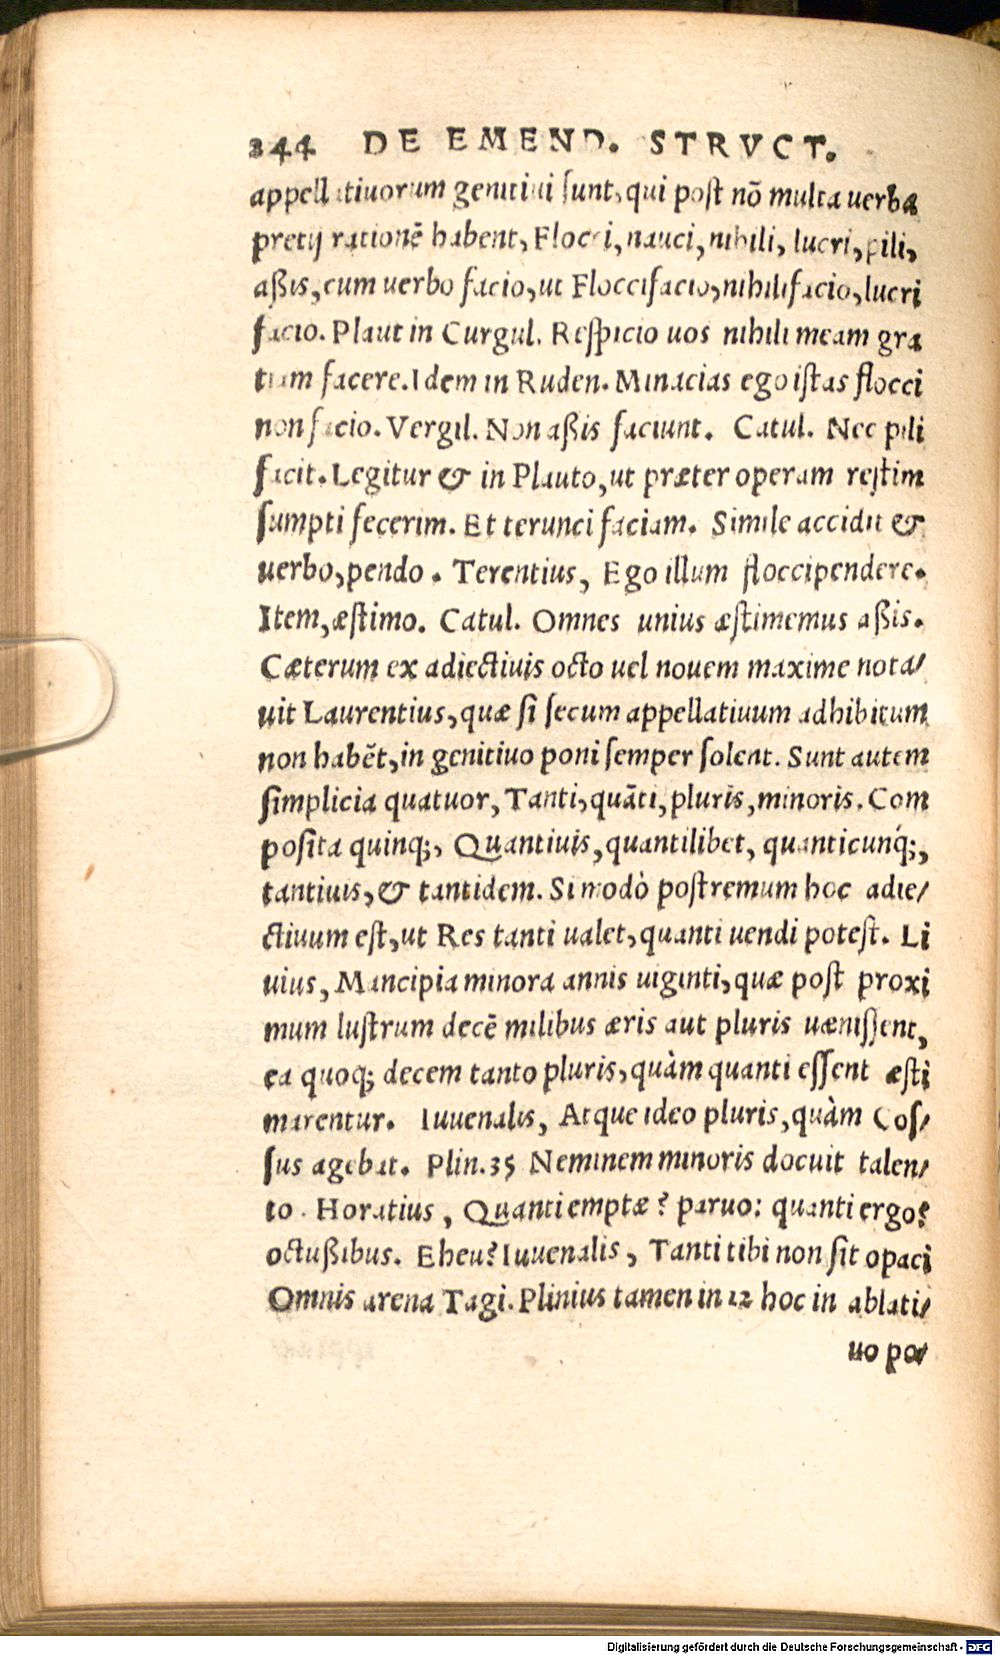 344 DE EMEND. STRVCT.
appellatiuorum genitiui ſunt, qui poſt nõ multa uerba
pretij rationẽ habent, Flocci, nauci, nihili, lucri, pili,
aßis, cum uerbo facio, ut Floccifacio, nihilifacio, lucri
facio. Plaut in Curgul. Reſpicio uos nihili meam gra
tiam facere. Idem in Ruden. Minacias ego iſtas flocci
non facio. Vergil. Non aßis faciunt. Catul. Nec pili
facit. Legitur & in Plauto, ut præter operam reſtim
ſumpti fecerim. Et terunci faciam. Simile accidit &
uerbo, pendo. Terentius, Ego illum floccipendere.
Item, æſtimo. Catul. Omnes unius æſtimemus aßis.
Cæterum ex adiectiuis octo uel nouem maxime nota/
uit Laurentius, quæ ſi ſecum appellatiuum adhibitum
non habẽt, in genitiuo poni ſemper ſolent. Sunt autem
ſimplicia quatuor, Tanti, quãti, pluris, minoris. Com
poſita quinq;, Quantiuis, quantilibet, quanticunq́;,
tantiuis, & tantidem. Si modò poſtremum hoc adie/
ctiuum eſt, ut Res tanti ualet, quanti uendi poteſt. Li
uius, Mancipia minora annis uiginti, quæ poſt proxi
mum luſtrum decẽ milibus æris aut pluris uæniſſent,
ea quoq; decem tanto pluris, quàm quanti eſſent æſti
marentur. Iuuenalis, Atque ideo pluris, quàm Coſ/
ſus agebat. Plin. 35 Neminem minoris docuit talen/
to. Horatius, Quanti emptæ? paruo: quanti ergo?
octußibus. Eheu? Iuuenalis, Tanti tibi non ſit opaci
Omnis arena Tagi. Plinius tamen in 12 hoc in ablati/
uo po/
Digitalisierung gefördert durch die Deutsche Forschungsgemeinschaft - DFG